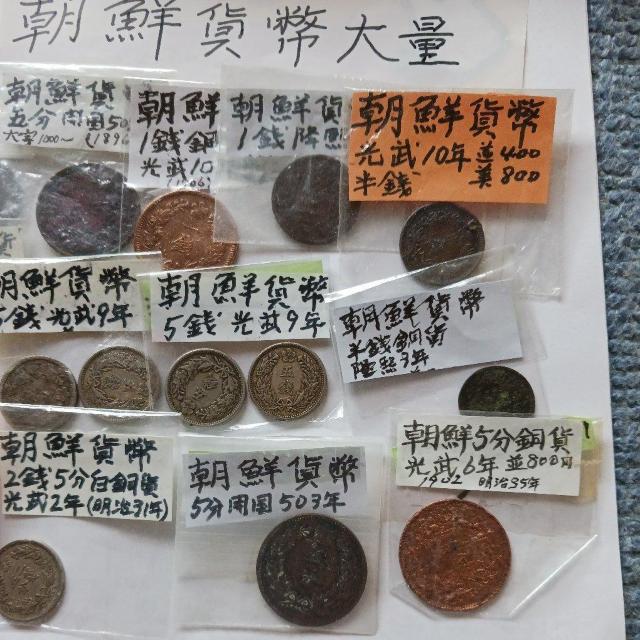 朝鮮貨幣大量
朝鮮貨
五分 開国50
朝鮮
1銭銅
光武10
朝鮮貨
1銭 隆熙
朝鮮貨幣
光武10年 並400
半銭 美800
朝鮮貨幣
5銭 光武9年
朝鮮貨幣
5銭 光武9年
朝鮮貨幣
半銭銅貨
隆熙3年
朝鮮貨幣
2銭5分白銅貨
光武2年(明治31年)
朝鮮貨幣
5分開国503年
朝鮮5分銅貨
光武6年 並800円
1902 明治35年